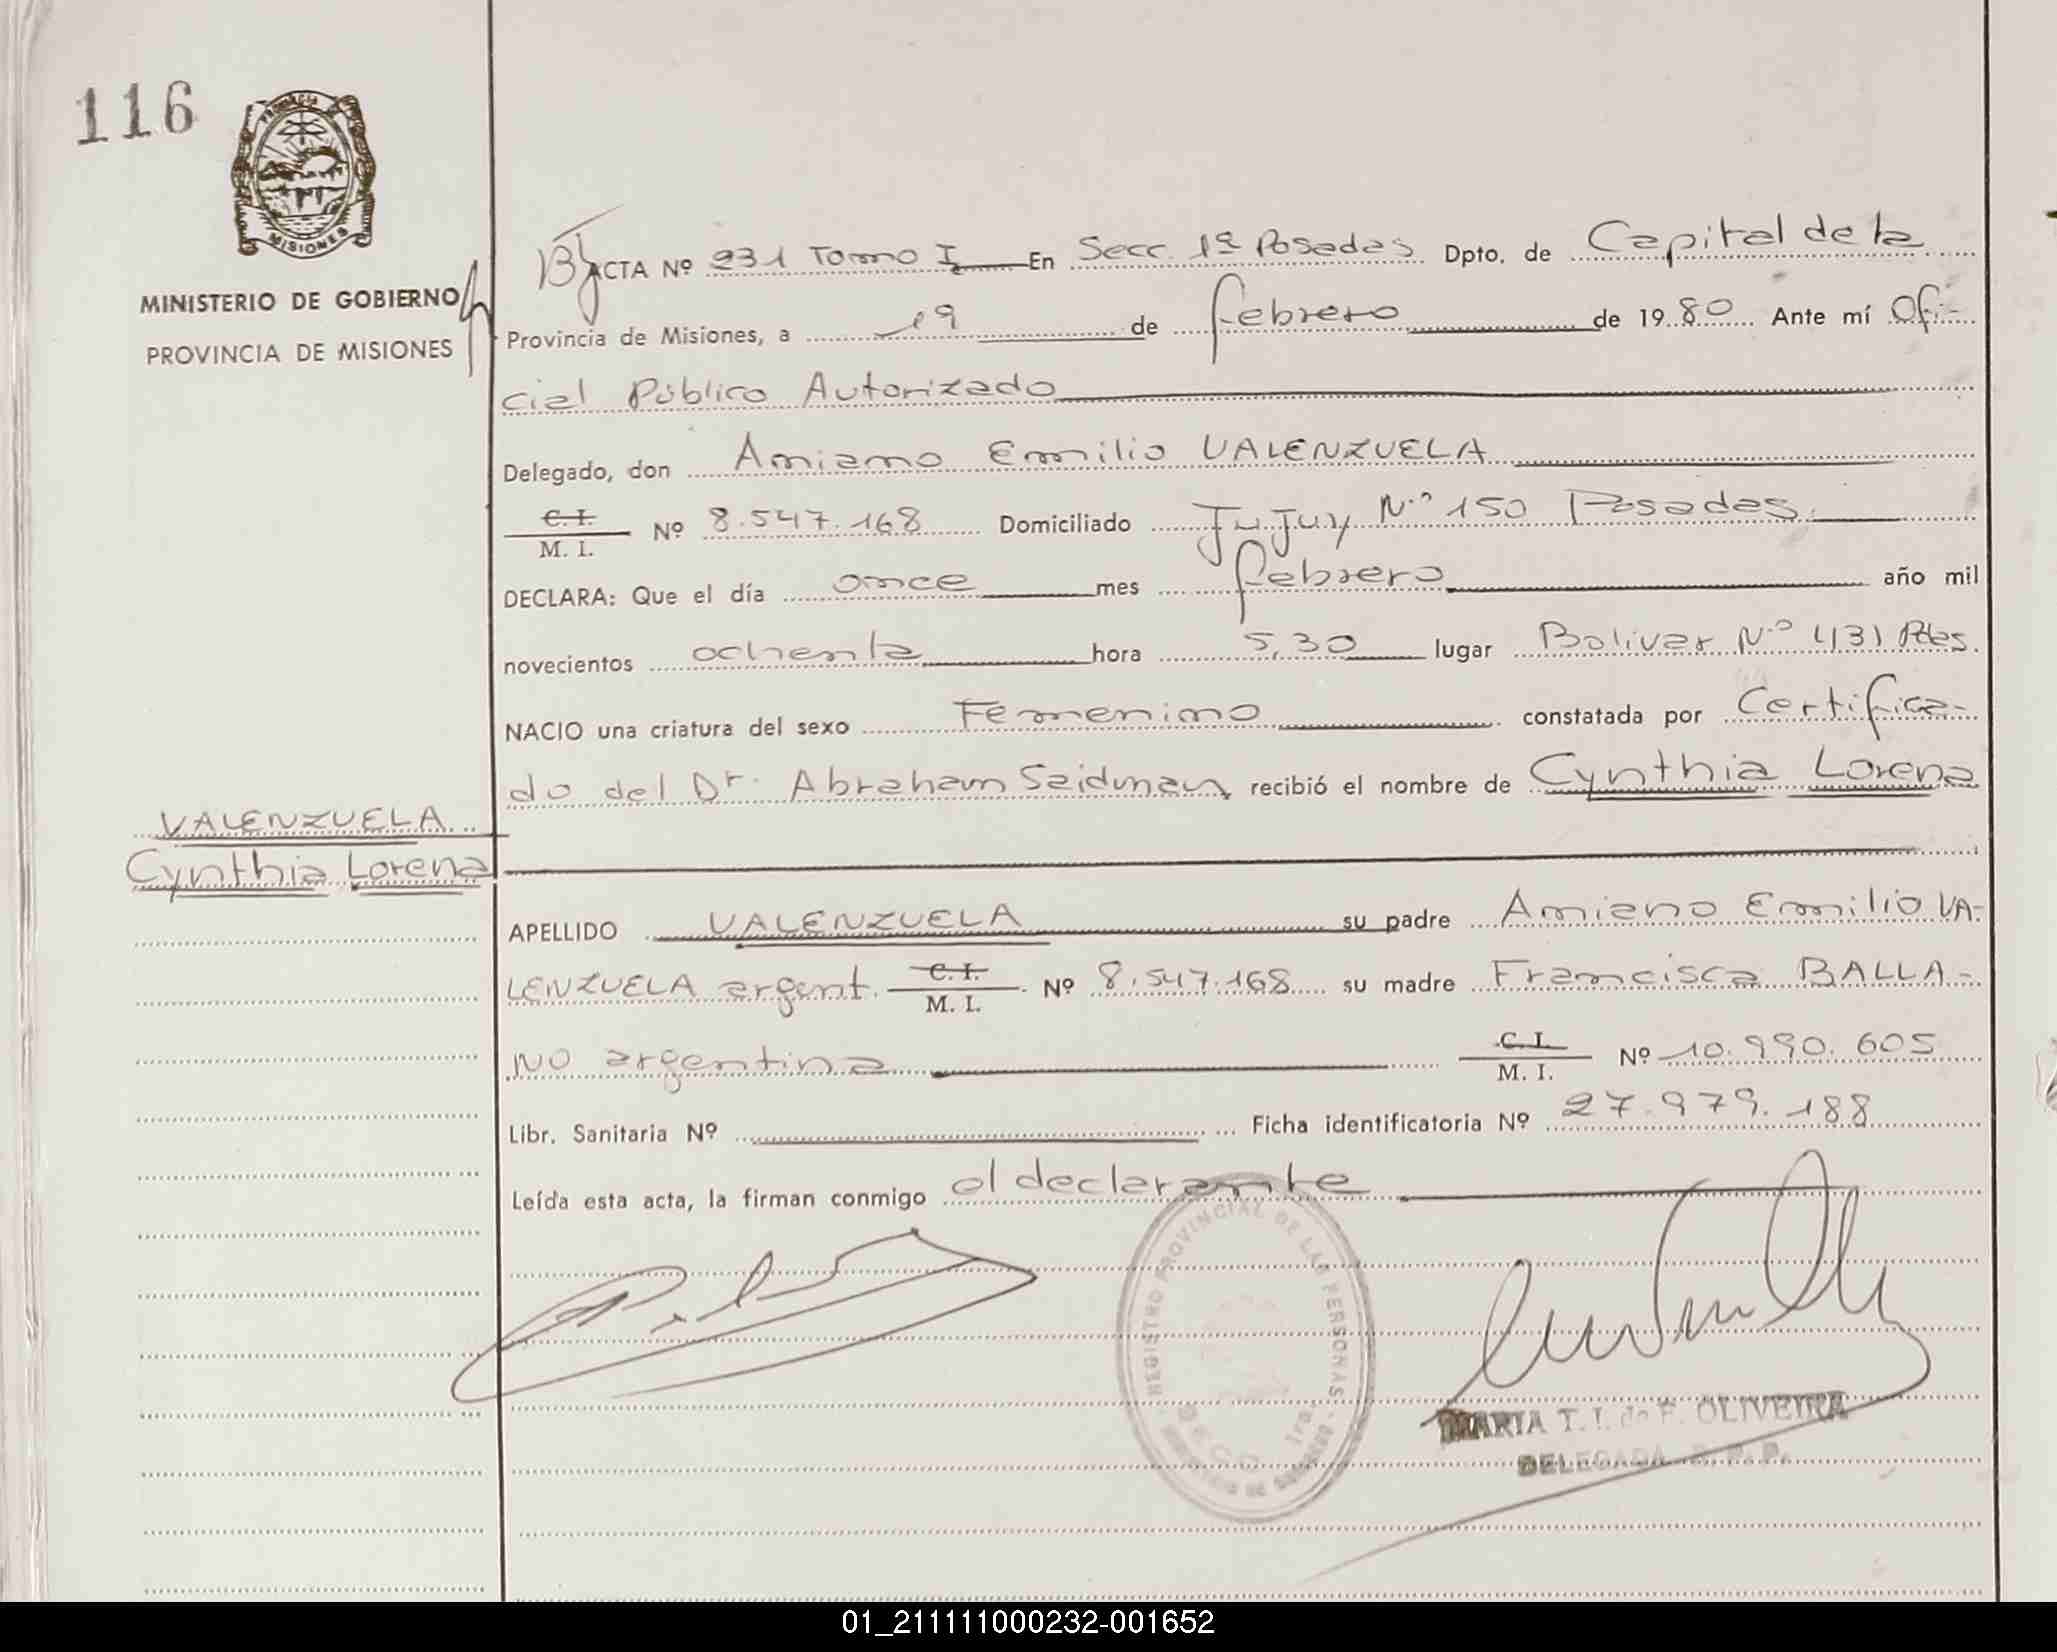 116
PROVINCIA
MISIONES
MINISTERIO DE GOBIERNO
PROVINCIA DE MISIONES
ACTA Nº 231 Tomo I En Secc. 1ª Posadas Dpto. de Capital de la
Provincia de Misiones, a 19 de febrero de 1980 Ante mí Ofi-
cial Público Autorizado
Delegado, don Amiano Emilio VALENZUELA
C. I.
M. I. Nº 8.547.168 Domiciliado Jujuy N.º 150 Posadas.
DECLARA: Que el día once mes febrero año mil
novecientos ochenta hora 5,30 lugar Bolivar N.º 431 Pdas.
NACIO una criatura del sexo Femenino constatada por Certifica-
do del Dr. Abraham Seidman recibió el nombre de Cynthia Lorena
VALENZUELA
Cynthia Lorena
APELLIDO VALENZUELA su padre Amiano Emilio VA-
LENZUELA argent. C. I. M. I. Nº 8.547.168 su madre Francisca BALLA-
NO argentina C. I. M. I. Nº 10.990.605
Libr. Sanitaria Nº Ficha identificatoria Nº 27.979.188
Leída esta acta, la firman conmigo el declarante
REGISTRO PROVINCIAL DE LAS PERSONAS
MARIA T. I. de F. OLIVEIRA
DELEGADA R. P. P.
01_211111000232-001652